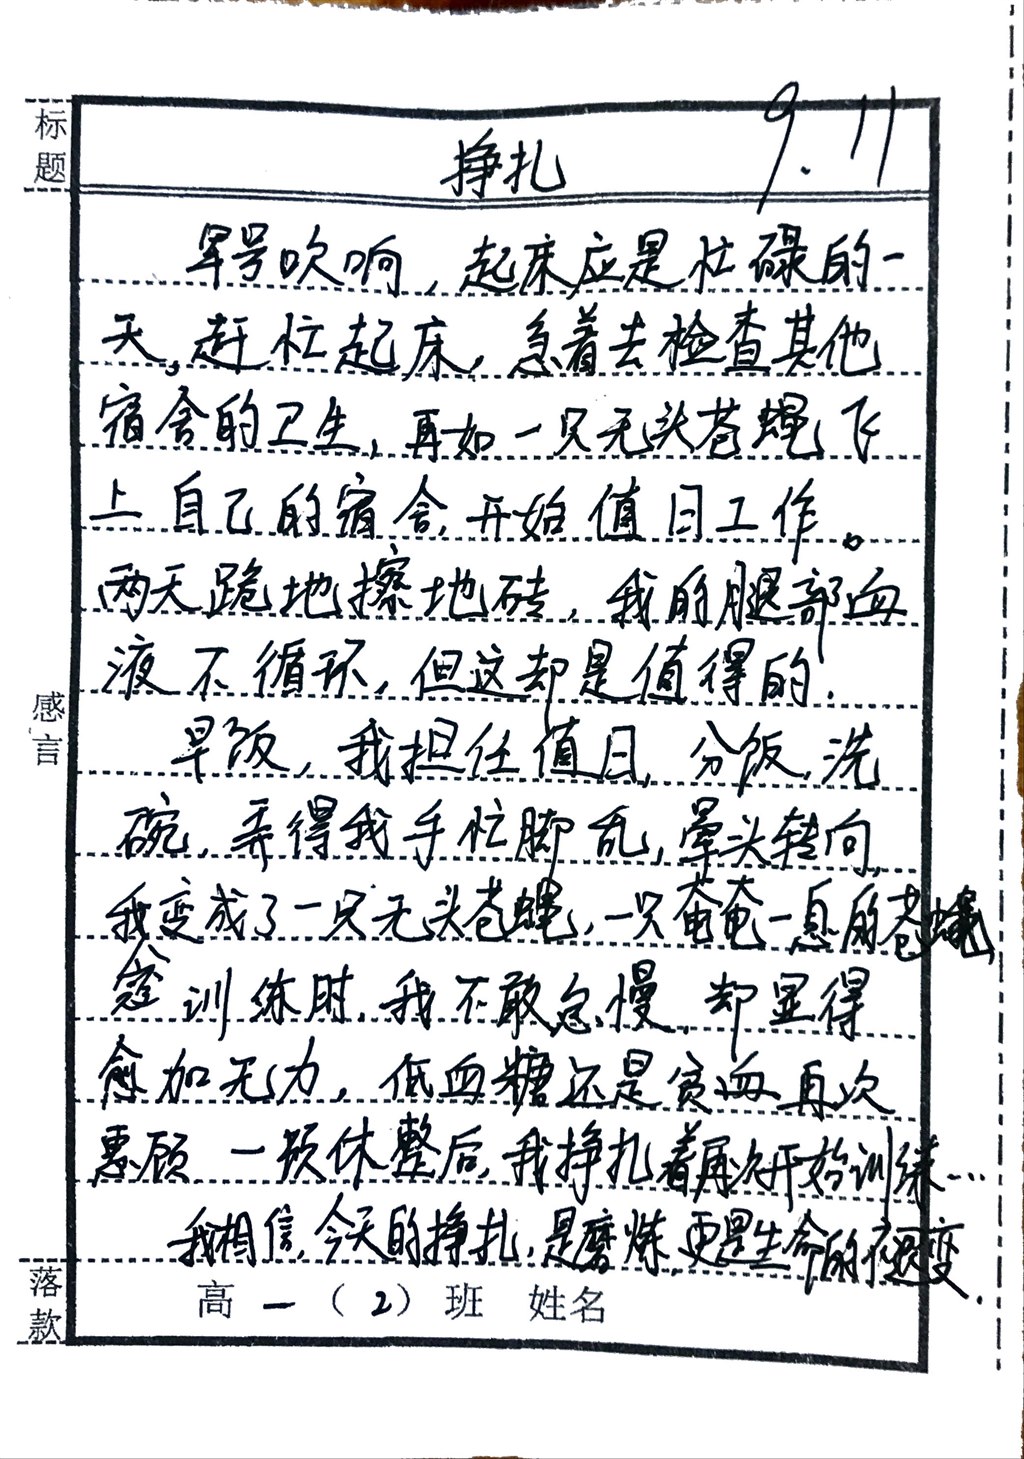 标题
挣扎
9.11
军号吹响，起床应是忙碌的一
天，赶忙起床，急着去检查其他
宿舍的卫生，再如一只无头苍蝇飞
上自己的宿舍，开始值日工作。
两天跪地擦地砖，我的腿部血
液不循环，但这却是值得的.
早饭，我担任值日，分饭，洗
碗，弄得我手忙脚乱，晕头转向，
我变成了一只无头苍蝇，一只奄奄一息的苍蝇，
训练时，我不敢怠慢，却显得
愈加无力，低血糖还是贫血再次
惠顾，一顿休整后，我挣扎着再次开始训练…
我相信，今天的挣扎，是磨炼，更是生命的蜕变.
感言
落款
高一（2）班 姓名